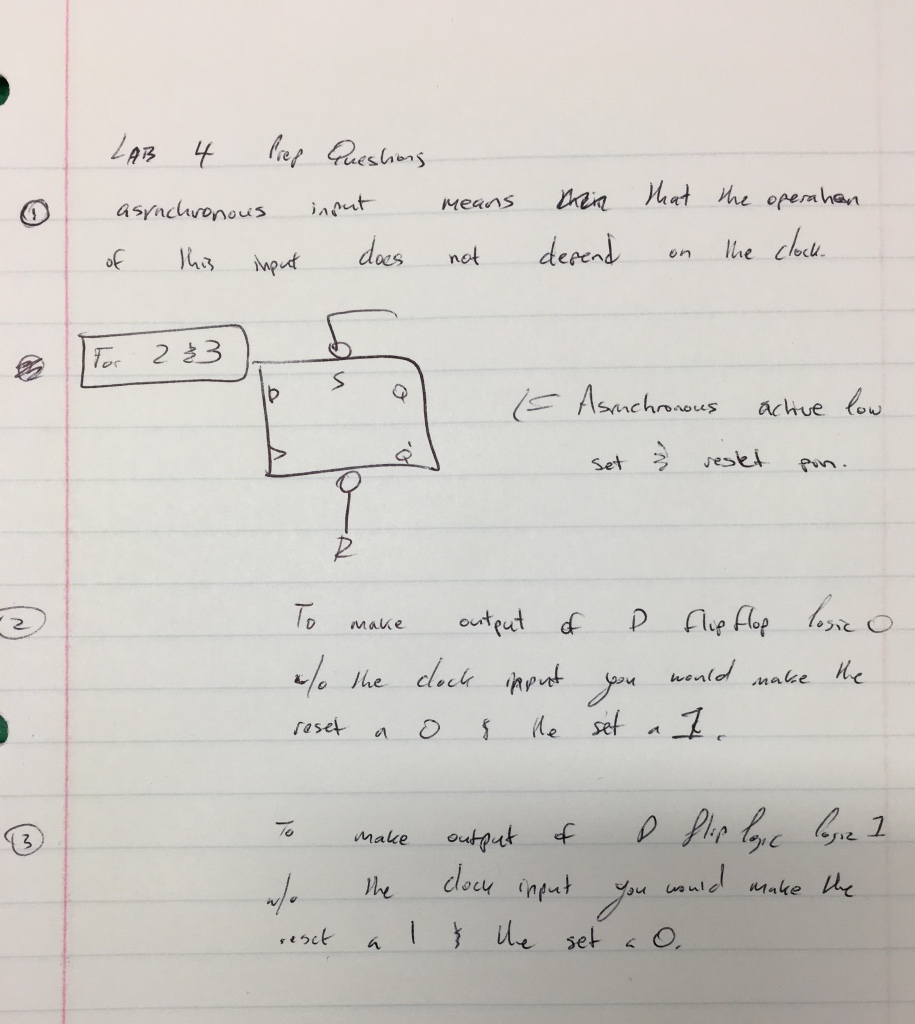 LAB 4 Prep Questions
① asynchronous input means that the operation
of this input does not depend on the clock.
For 2 & 3
S
D Q
> Q'
R
(= Asynchronous active low
set & reset pin.
② To make output of D flip flop logic 0
w/o the clock input you would make the
reset a 0 & the set a 1.
③ To make output of D flip logic logic 1
w/o the clock input you would make the
reset a 1 & the set a 0.